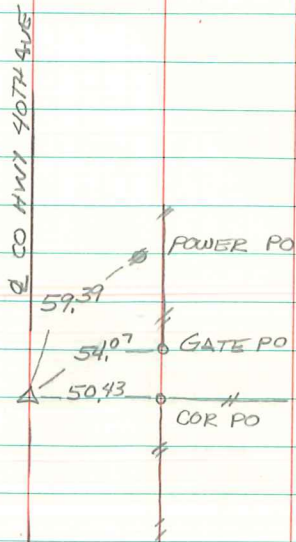 ℄ CO HWY 40TH AVE
POWER PO
59.39
54.07
GATE PO
50.43
COR PO